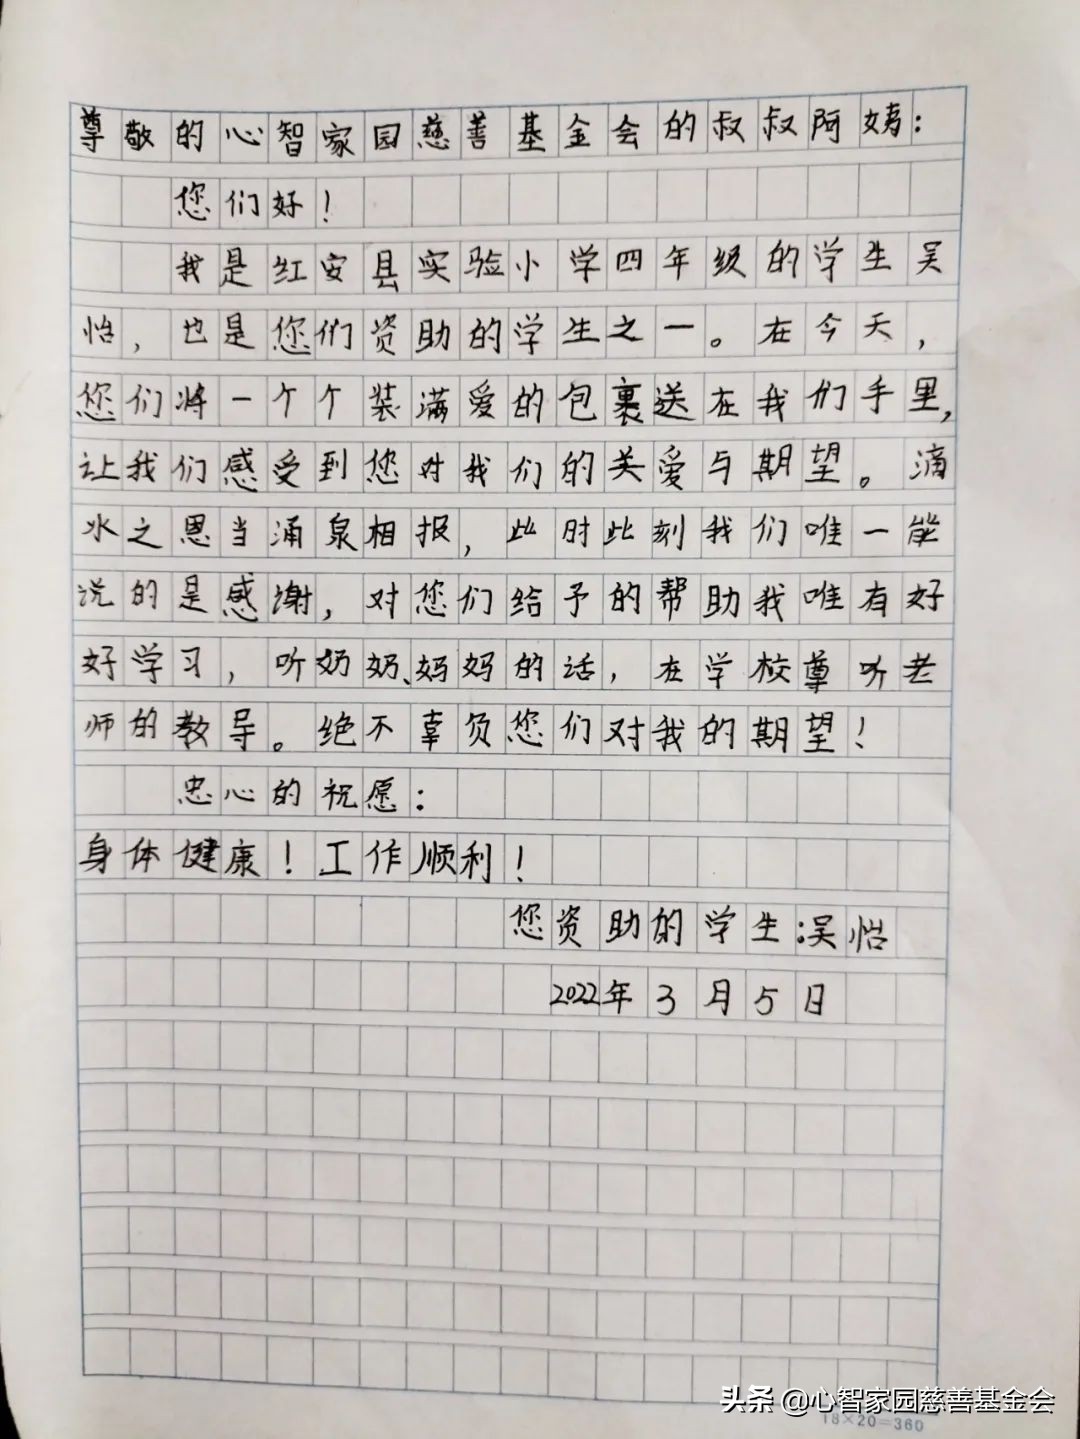 尊敬的心智家园慈善基金会的叔叔阿姨：
您们好！
我是红安县实验小学四年级的学生吴
怡，也是您们资助的学生之一。在今天，
您们将一个个装满爱的包裹送在我们手里，
让我们感受到您对我们的关爱与期望。滴
水之恩当涌泉相报，此时此刻我们唯一能
说的是感谢，对您们给予的帮助我唯有好
好学习，听奶奶、妈妈的话，在学校尊听老
师的教导。绝不辜负您们对我的期望！
忠心的祝愿：
身体健康！工作顺利！
您资助的学生：吴怡
2022年3月5日
头条 @心智家园慈善基金会
18×20=360